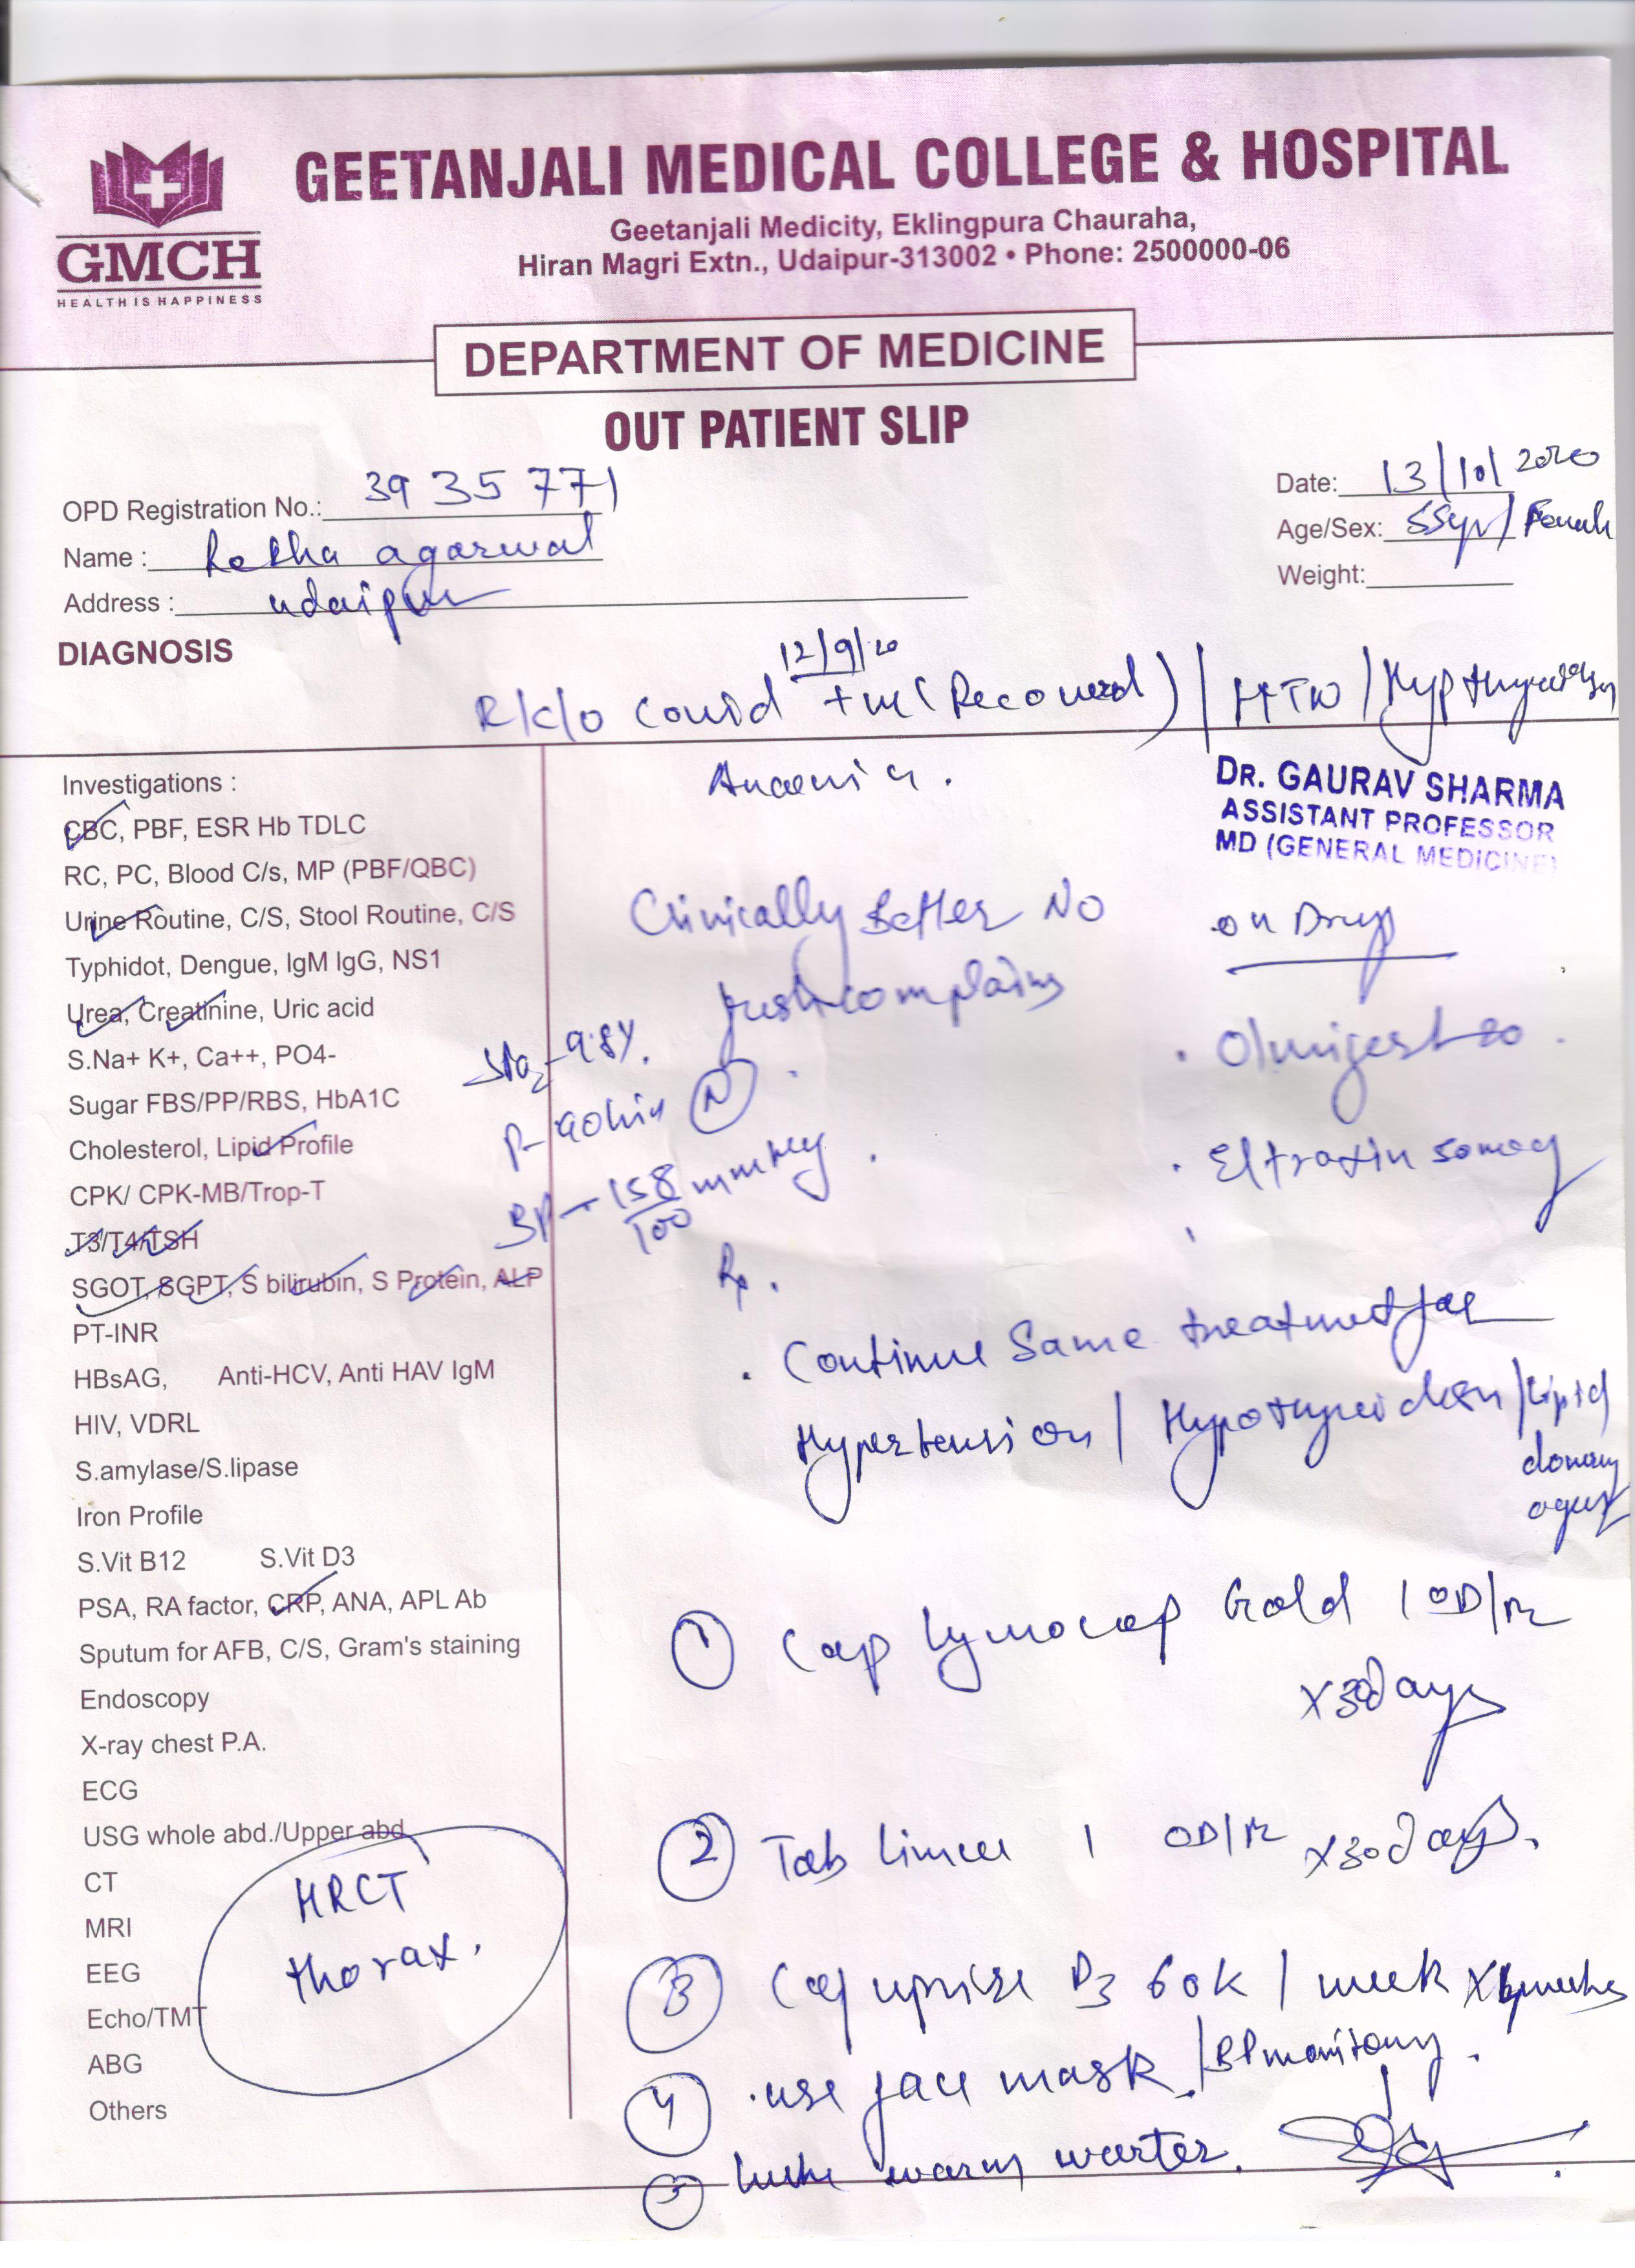 GMCH
HEALTH IS HAPPINESS
GEETANJALI MEDICAL COLLEGE & HOSPITAL
Geetanjali Medicity, Eklingpura Chauraha,
Hiran Magri Extn., Udaipur-313002 • Phone: 2500000-06
DEPARTMENT OF MEDICINE
OUT PATIENT SLIP
OPD Registration No.: 3935771
Date: 13/10/2020
Name : agarwal
Age/Sex: 55yr/ Female
Address : udaipur
Weight:
DIAGNOSIS
12/9/20
R/k/o Covid +ve (Recovered) / HTN / Hypothyroidism
Anaemia.
DR. GAURAV SHARMA
ASSISTANT PROFESSOR
MD (GENERAL MEDICINE)
Investigations :
CBC, PBF, ESR Hb TDLC
RC, PC, Blood C/s, MP (PBF/QBC)
Urine Routine, C/S, Stool Routine, C/S
Typhidot, Dengue, IgM IgG, NS1
Urea, Creatinine, Uric acid
S.Na+ K+, Ca++, PO4-
Sugar FBS/PP/RBS, HbA1C
Cholesterol, Lipid Profile
CPK/ CPK-MB/Trop-T
T3/T4/TSH
SGOT, SGPT, S bilirubin, S Protein, ALP
PT-INR
HBsAG, Anti-HCV, Anti HAV IgM
HIV, VDRL
S.amylase/S.lipase
Iron Profile
S.Vit B12 S.Vit D3
PSA, RA factor, CRP, ANA, APL Ab
Sputum for AFB, C/S, Gram's staining
Endoscopy
X-ray chest P.A.
ECG
USG whole abd./Upper abd
CT
MRI
EEG
Echo/TMT
ABG
Others
HRCT
thorax.
Clinically Better No
fresh complains
on Drugs
SPO2 - 98%.
P- 90/min (N)
BP - 158/100 mmHg
Eltroxin 50mcg
Rp.
Continue Same treatment for
Hypertension / Hypothyroidism / lipid
agent
1 Cap Lymocap Gold 1 OD/M
x30days
2 Tab 1 OD/M x30days.
3 Cap uprise D3 60K / week
4 use face mask / BP monitoring.
5 luke warm water.